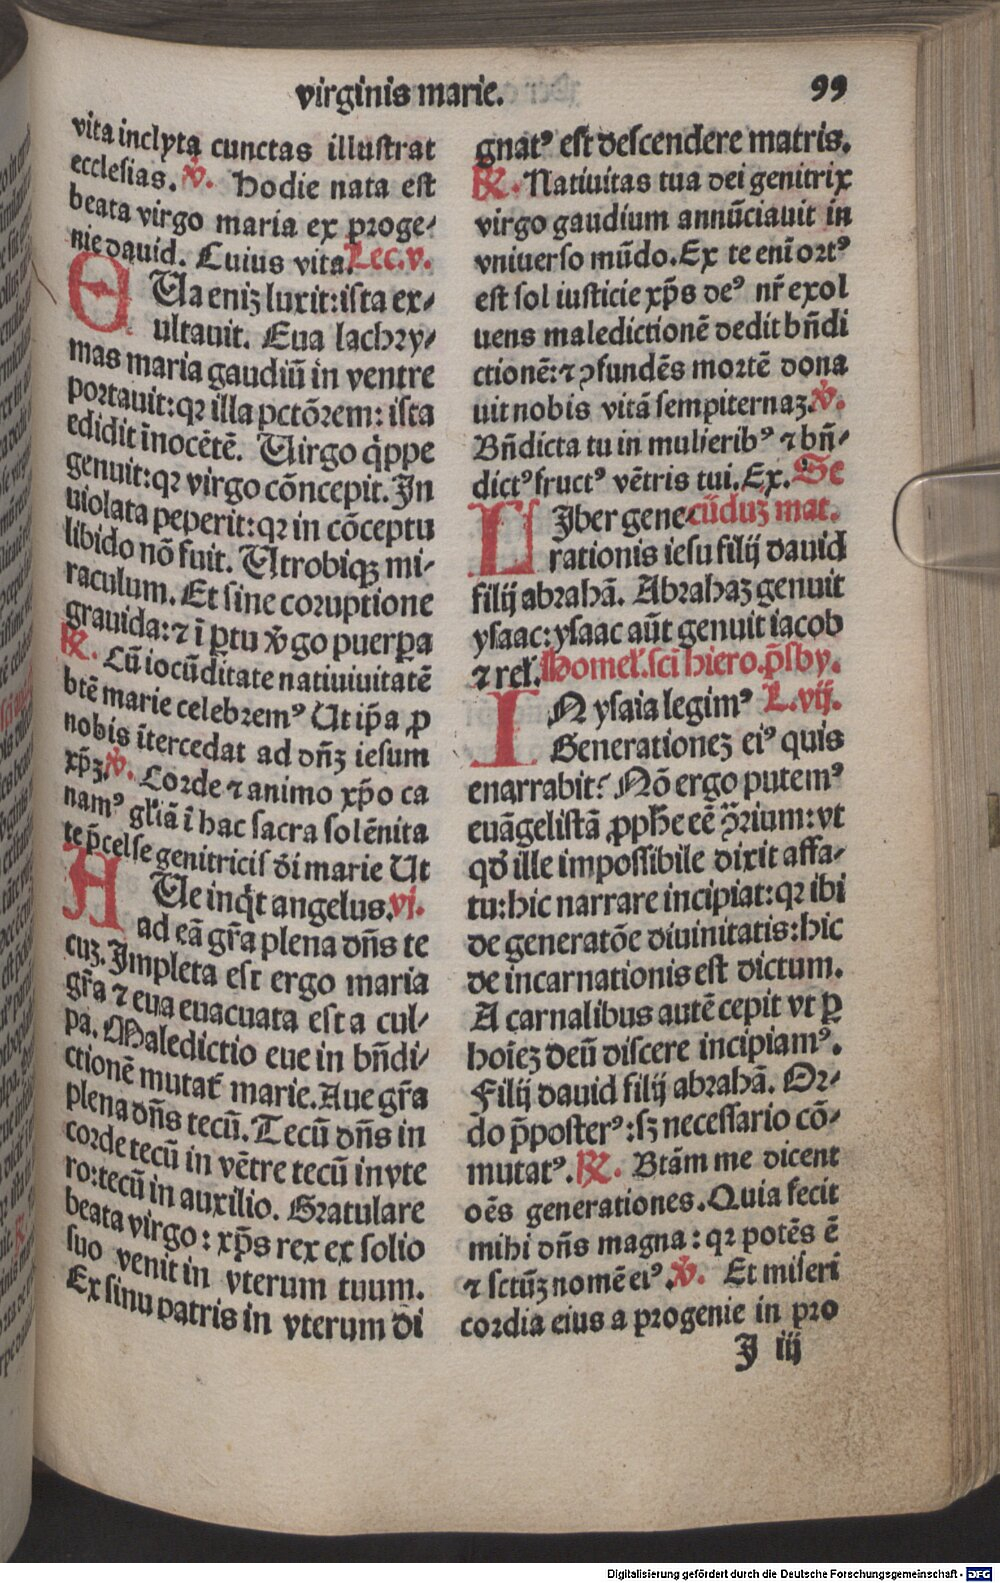 virginis marie.
99
vita inclyta cunctas illustrat
ecclesias. ℣. Hodie nata est
beata virgo maria ex proge-
nie dauid. Cuius vita Lec.v.
Θ Ua eniʒ luxit:ista ex-
ultauit. Eua lachry-
mas maria gaudiū in ventre
portauit:qꝛ illa pctōrem: ista
edidit īnocētē. Uirgo q̇ppe
genuit:qꝛ virgo cōncepit. In
uiolata peperit:qꝛ in cōceptu
libido nō fuit. Utrobiqꝫ mi-
raculum. Et sine coruptione
grauida:⁊ ī ꝑtu v̇go puerꝑa
℟. Cū iocūditate natiuiuitatē
btē marie celebremꝰ Ut ip̄a ꝓ
nobis ītercedat ad dn̄ʒ iesum
xp̄ʒ.℣. Corde ⁊ animo xp̄o ca
namꝰ gl̄iā ī hac sacra solēnita
te p̄celse genitricis d̄i marie Ut
A Ue inq̇t angelus.vj.
ad eā gr̄a plena dn̄s te
cuʒ. Impleta est ergo maria
gr̄a ⁊ eua euacuata est a cul-
pa. Maledictio eue in bn̄di-
ctionē mutat̄ marie. Aue gr̄a
plena dn̄s tecū. Tecū dn̄s in
corde tecū in vētre tecū in vte
ro:tecū in auxilio. Gratulare
beata virgo: xp̄s rex ex solio
suo venit in vterum tuum.
Ex sinu patris in vterum di
gnatꝰ est descendere matris.
℟. Natiuitas tua dei genitrix
virgo gaudium annūciauit in
vniuerso mūdo. Ex te enī ortꝰ
est sol iusticie xp̄s deꝰ nr̄ exol
uens maledictionē dedit bn̄di
ctionē:⁊ ꝯfundēs mortē dona
uit nobis vitā sempiternaʒ.℣.
Bn̄dicta tu in mulieribꝰ ⁊ bn̄-
dictꝰ fructꝰ vētris tui. Ex. Se
L Iber gene- cūduʒ mat.
rationis iesu filij dauid
filij abrahā. Abrahaʒ genuit
ysaac: ysaac aūt genuit iacob
⁊ rel̄. Homel̄. sci hiero. p̄sby.
I N ysaia legimꝰ L.vij.
Generationeʒ eiꝰ quis
enarrabit? Nō ergo putemꝰ
euāgelistā ꝓph̄e eē ꝯ̄rium: vt
qd̄ ille impossibile dixit affa-
tu: hic narrare incipiat: qꝛ ibi
de generatōe diuinitatis: hic
de incarnationis est dictum.
A carnalibus autē cepit vt ꝑ
hoīeʒ deū discere incipiamꝰ.
Filij dauid filij abrahā. Or-
do p̄posterꝰ: sʒ necessario cō-
mutatꝰ. ℟. Btām me dicent
oēs generationes. Quia fecit
mihi dn̄s magna: qꝛ potēs ē
⁊ sctūʒ nomē eiꝰ. ℣. Et miseri
cordia eius a progenie in pro
J iij
Digitalisierung gefördert durch die Deutsche Forschungsgemeinschaft - DFG